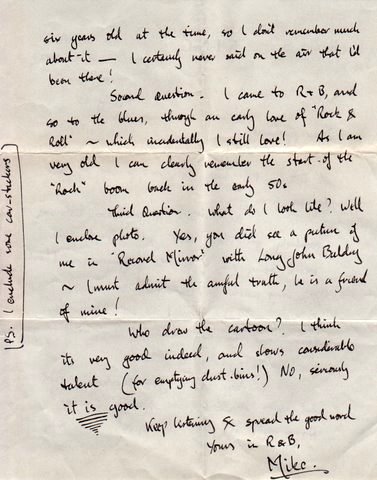 six years old at the time, so I don't remember much
about it — I certainly never said on the air that I'd
been there!
Second Question. I came to R+B, and
so to the blues, through an early love of "Rock &
Roll" ~ which incidentally I still love! As I am
very old I can clearly remember the start of the
"Rock" boom back in the early 50s
Third Question. What do I look like? Well
I enclose photo. Yes, you did see a picture of
me in "Record Mirror" with Long John Baldry
~ I must admit the awful truth, he is a friend
of mine!
Who drew the cartoon? I think
its very good indeed, and shows considerable
talent (for emptying dust-bins!) No, seriously
it is good.
Keep listening & spread the good word
Yours in R&B,
Mike.
PS. I enclose some car-stickers